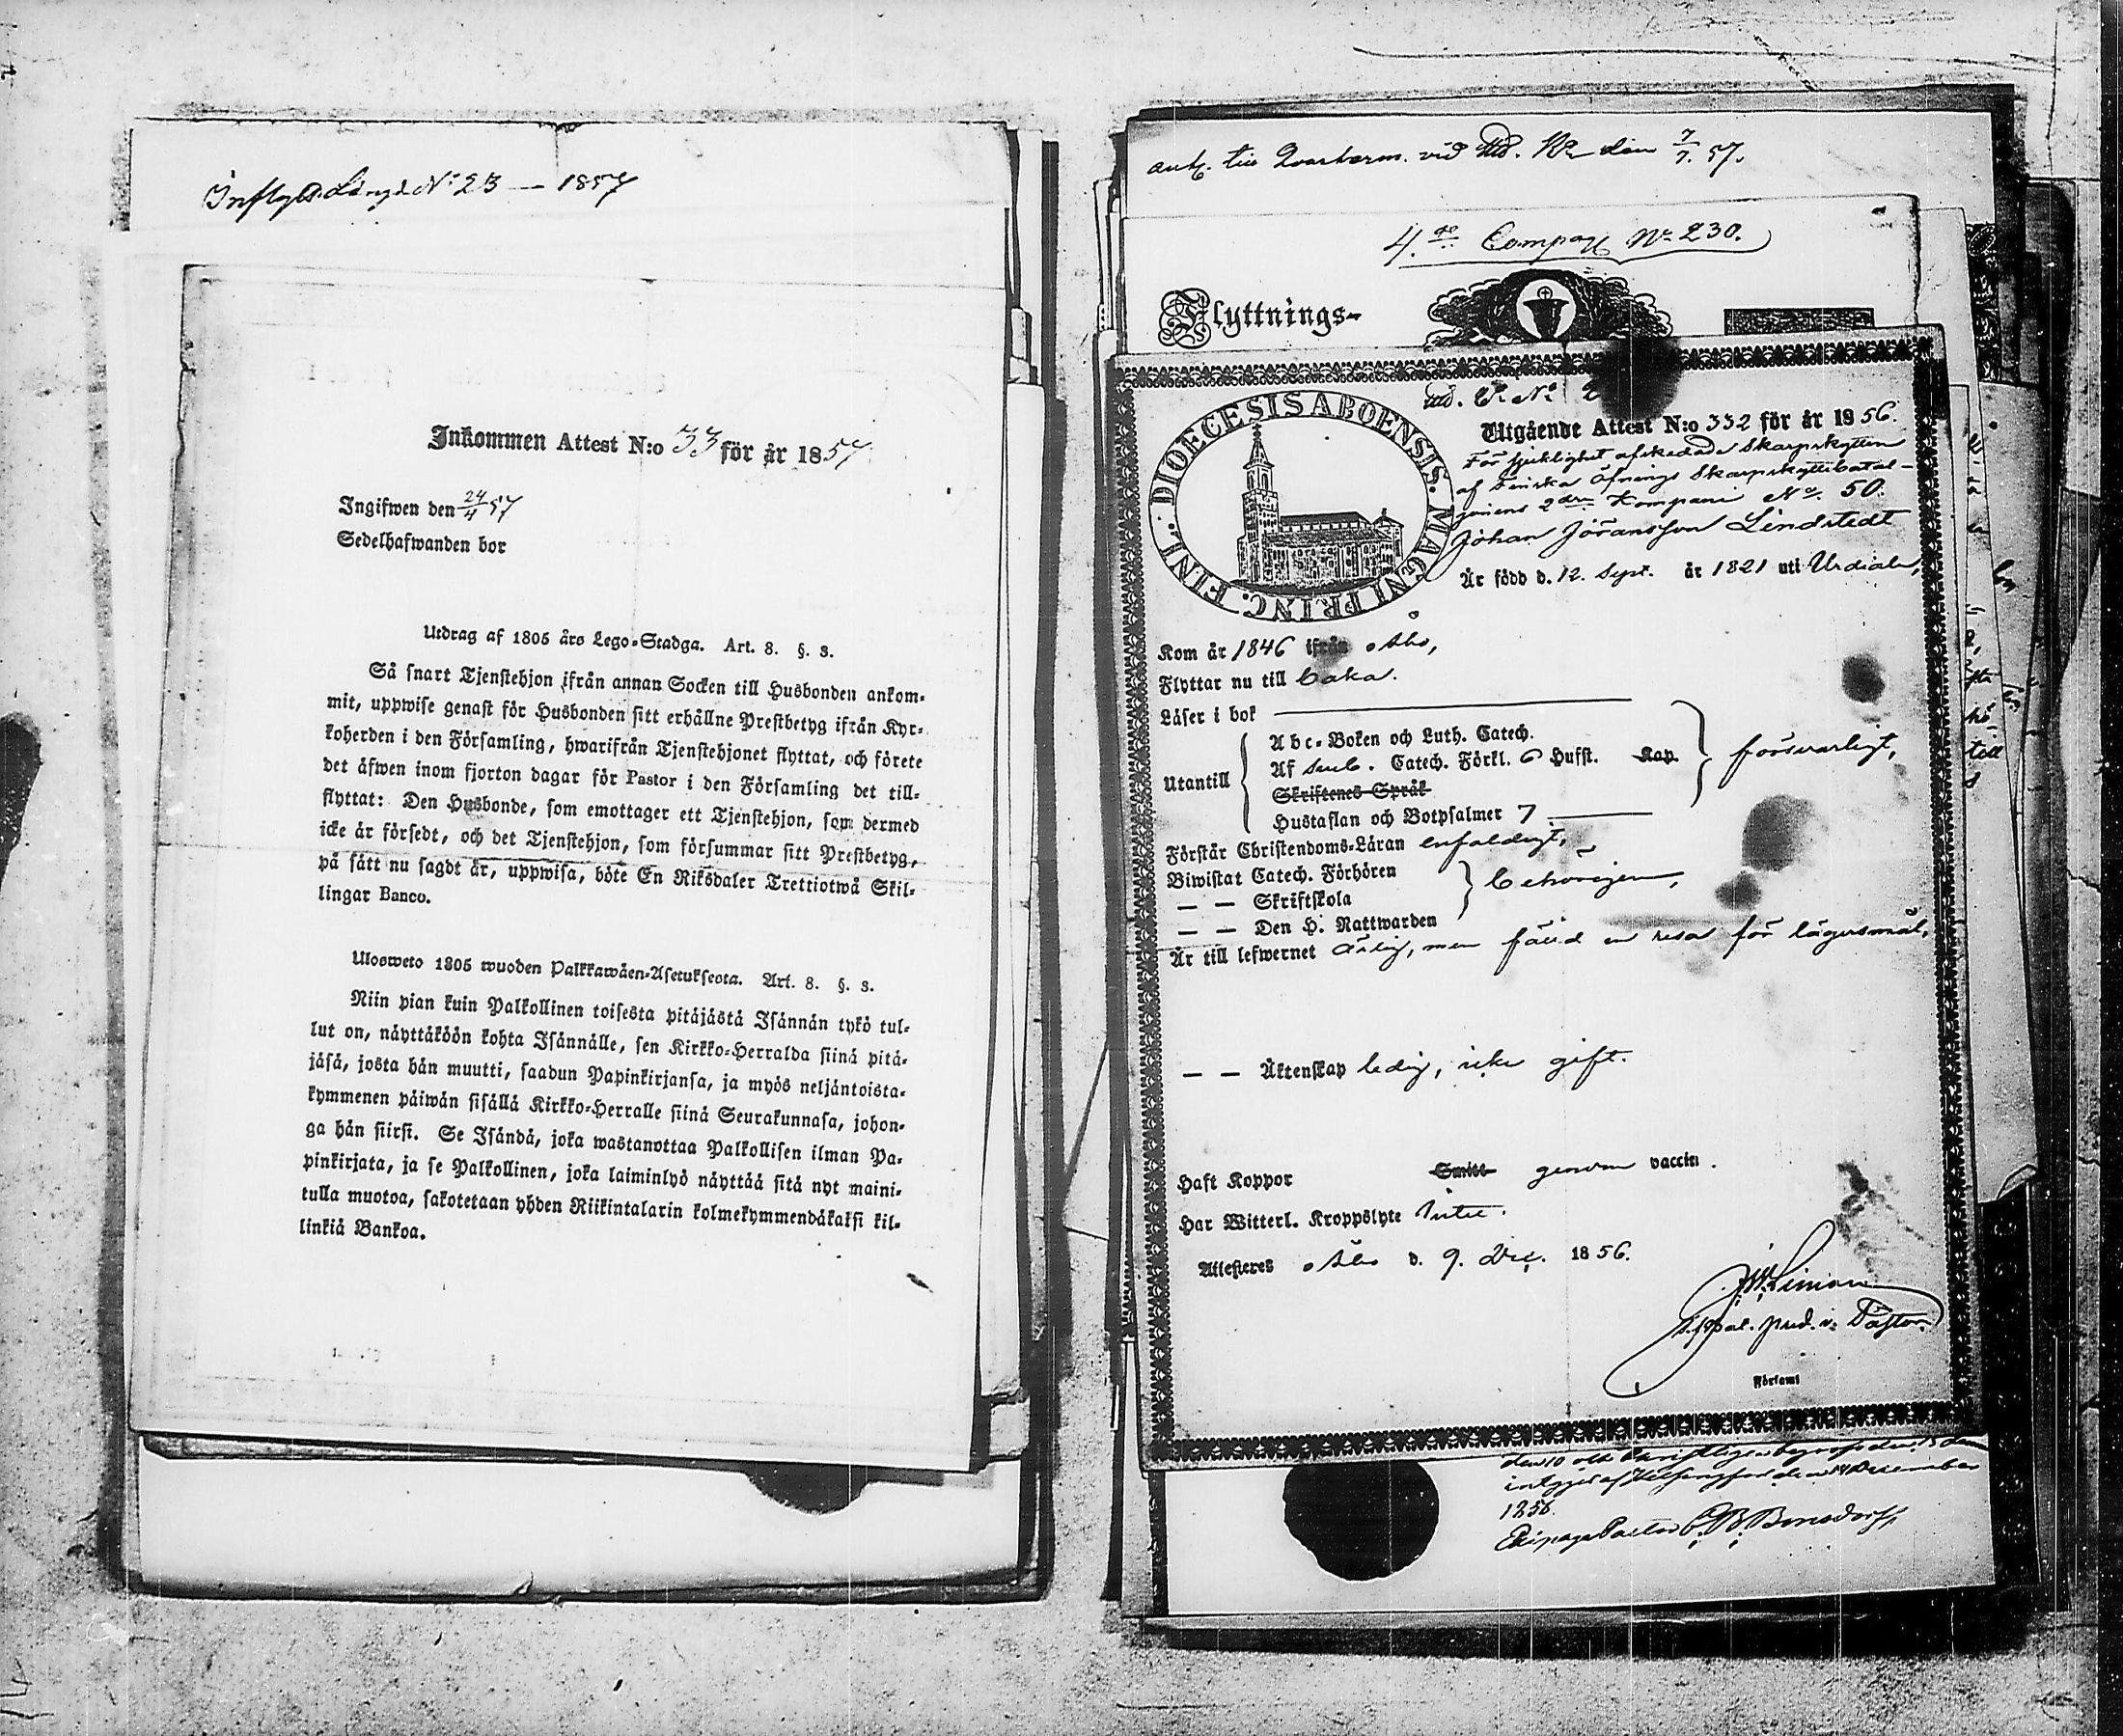 Inflyttn. Längd N:o 23 — 1857
Inkommen Attest N:o 33 för år 1857
Ingifwen den 24/4 57
Sedelhafwanden bor
Utdrag af 1805 års Lego-Stadga. Art. 8. §. 3.
Så snart Tjenstehjon ifrån annan Socken till Husbonden ankom-
mit, uppwise genast för Husbonden sitt erhållne Prestbetyg ifrån Kyr-
koherden i den Församling, hwarifrån Tjenstehjonet flyttat, och förete
det äfwen inom fjorton dagar för Pastor i den Församling det till-
flyttat: Den Husbonde, som emottager ett Tjenstehjon, som dermed
icke är försedt, och det Tjenstehjon, som försummar sitt Prestbetyg,
på sätt nu sagdt är, uppwisa, böte En Riksdaler Trettiotwå Skil-
lingar Banco.
Ulosweto 1805 wuoden Palkkawäen-Asetuksesta. Art. 8. §. 3.
Niin pian kuin Palkollinen toisesta pitäjästä Isännän tykö tul-
lut on, näyttäköön kohta Isännälle, sen Kirkko-Herralda siinä pitä-
jäsä, josta hän muutti, saadun Papinkirjansa, ja myös neljäntoista-
kymmenen päiwän sisällä Kirkko-Herralle siinä Seurakunnasa, johon-
ga hän siirsi. Se Isändä, joka wastanottaa Palkollisen ilman Pa-
pinkirjata, ja se Palkollinen, joka laiminlyö näyttää sitä nyt maini-
tulla muotoa, sakotetaan yhden Riikintalarin kolmekymmendäkaksi kil-
linkiä Bankoa.
den 7/7. 57.
4:de Compag N:o 230.
Flyttnings-
DIOECESIS ABOENSIS. MAGNI PRINC. FINL:
Utgående Attest N:o 332 för år 1856.
För sjuklighet afskedade Skarpskytten
af Finska Öfnings Skarpskyttebatal-
jonens 2dra Kompani N:o 50.
Johan Jöransson Lindstedt
Är född d. 12. Sept. år 1821 uti Urdiala,
Kom år 1846 ifrån Åbo,
Flyttar nu till
Läser i bok
Abc-Boken och Luth. Catech.
Utantill Af Sveb. Catech. Förkl. 6 Hufst. Kap. försvarligt,
Skriftenes Språk
Hustaflan och Botpsalmer 7
Förstår Christendoms-Läran enfaldigt,
Biwistat Catech. Förhören
— — Skriftskola behörigen,
— — Den H. Nattwarden
Är till lefwernet ärlig, men fälld en resa för lägersmål,
— — Äktenskap ledig, icke gift.
Haft Koppor Smitt genom vaccin.
Har Witterl. Kroppslyte intet.
Attesteras Åbo d. 9. Dec. 1856.
v: Pastor.
Församl
den 10 och Christligen begrafs den 13
intygat af Helsingfors den 14 December
1856.